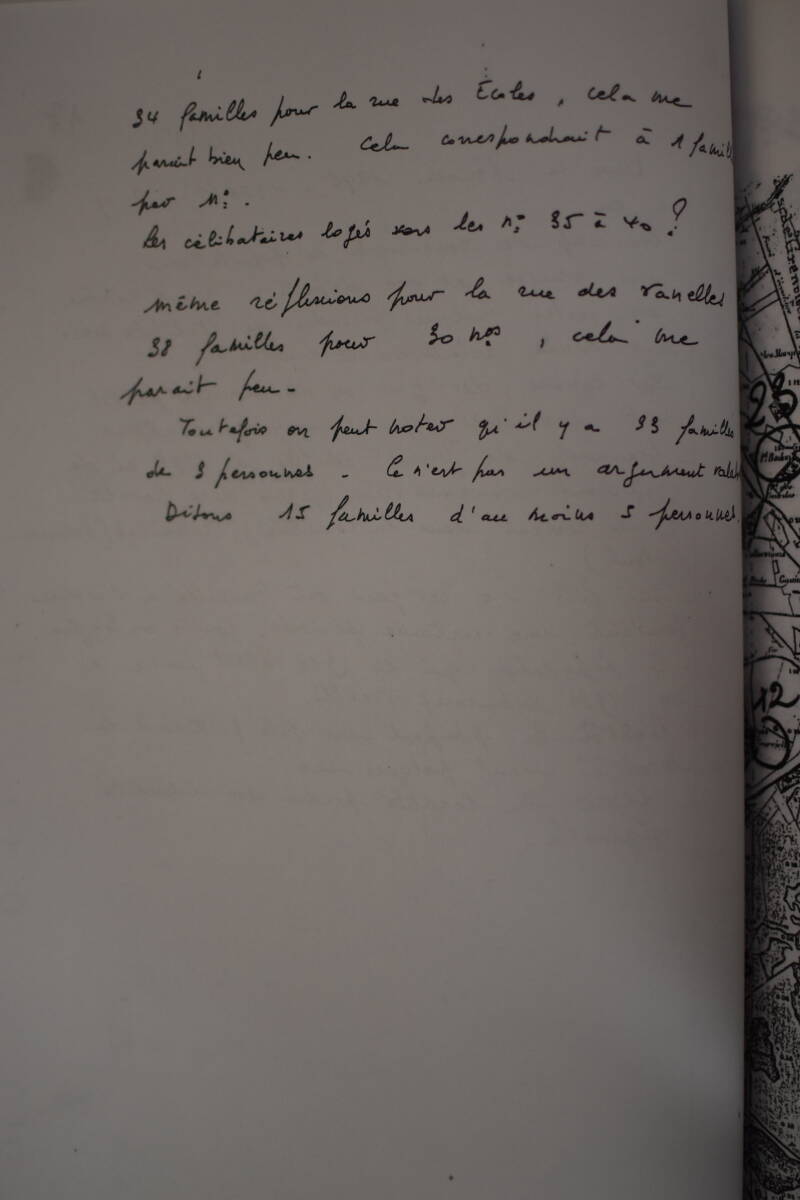 34 familles pour la rue des Écoles, cela me
parait bien peu. Cela correspondrait à 1 famill
par n°.
Les célibataires logés vers les n° 35 à 40 ?
même réflexions pour la rue des ranelles
38 familles pour 30 nos, cela me
parait peu -
Toutefois on peut noter qu'il y a 33 familles
de 3 personnes - Ce n'est pas un argument
Disons 15 familles d'au moins 5 personnes.
23
12